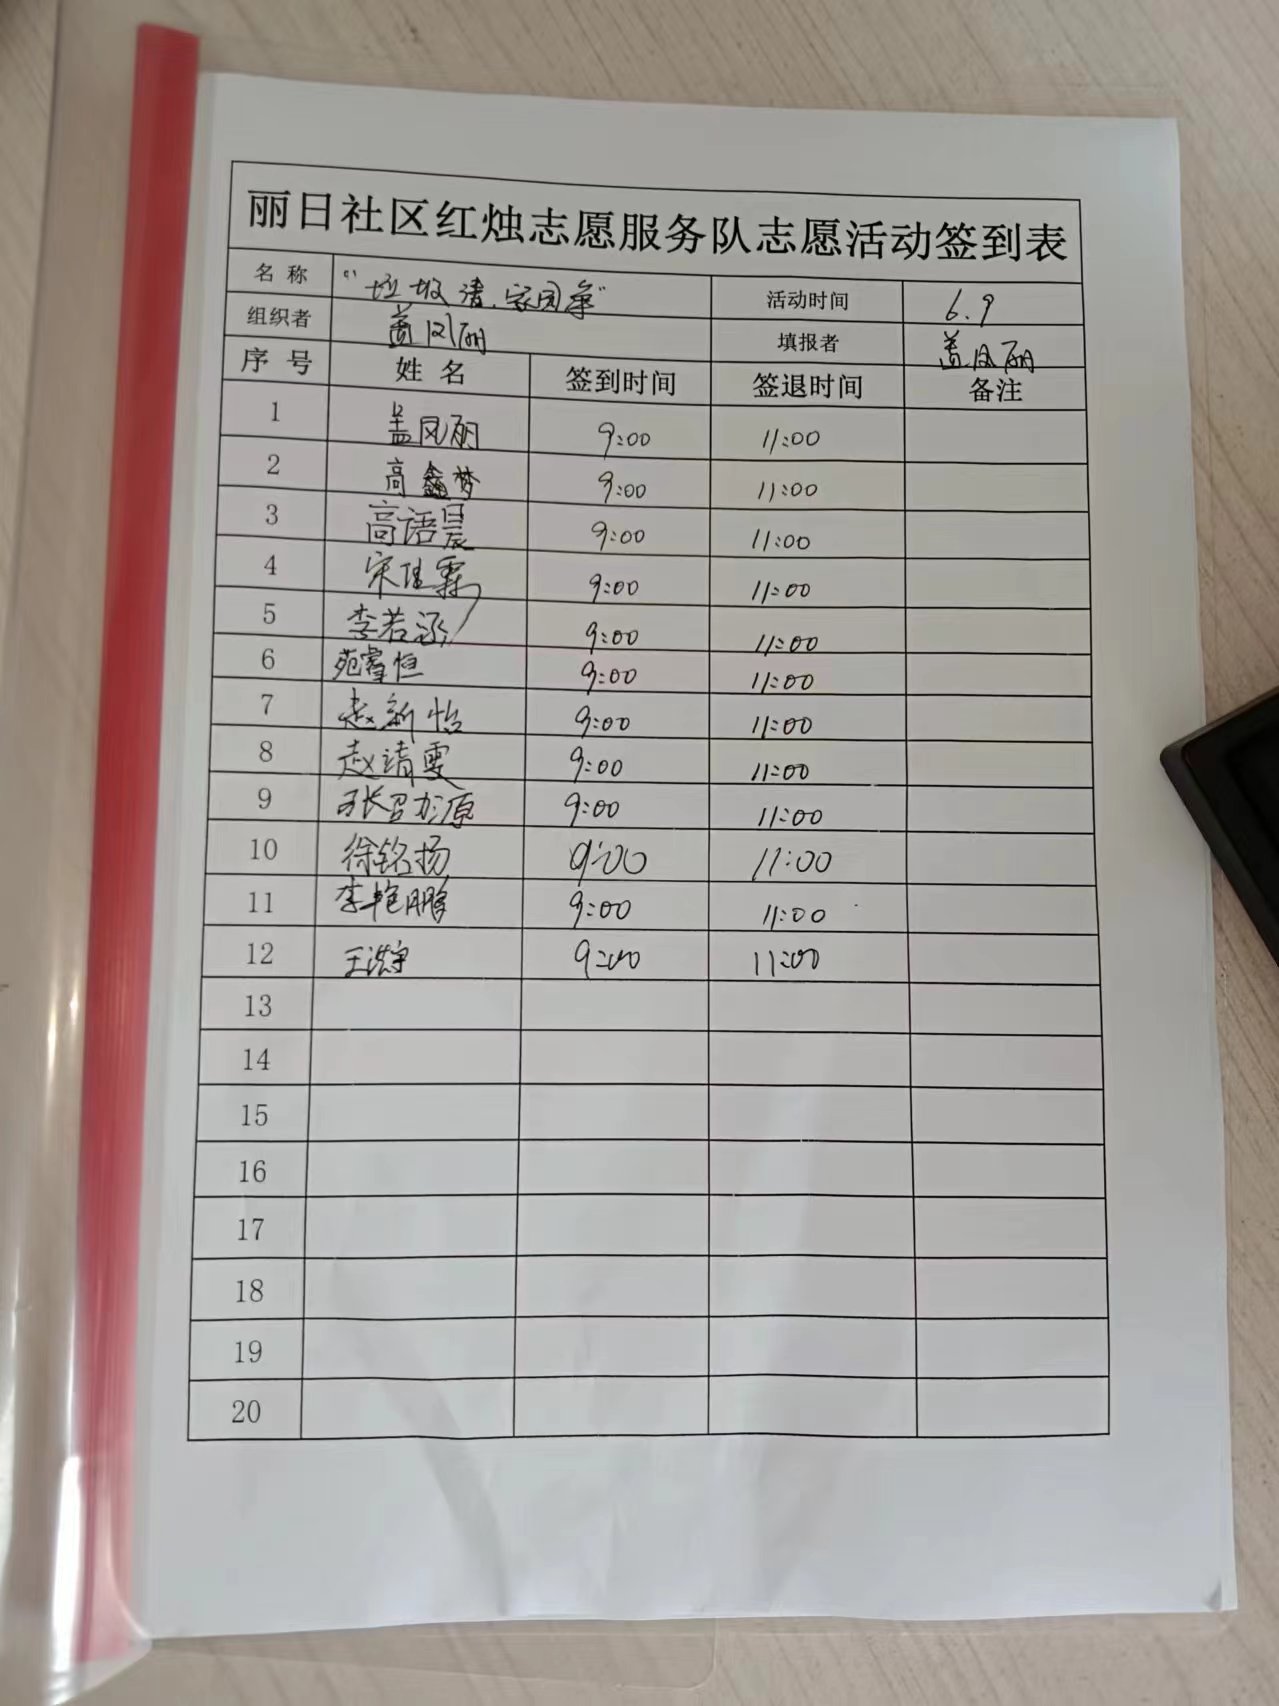 丽日社区红烛志愿服务队志愿活动签到表
名 称 “垃圾清、家园净” 活动时间 6.9
组织者 盖凤丽 填报者 盖凤丽
序 号 姓 名 签到时间 签退时间 备注
1 盖凤丽 9:00 11:00
2 高鑫梦 9:00 11:00
3 高语晨 9:00 11:00
4 宋佳霖 9:00 11:00
5 李若涵 9:00 11:00
6 苑睿恒 9:00 11:00
7 赵新怡 9:00 11:00
8 赵靖雯 9:00 11:00
9 9:00 11:00
10 徐铭扬 9:00 11:00
11 李艳鹏 9:00 11:00
12 王浩宇 9:00 11:00
13
14
15
16
17
18
19
20